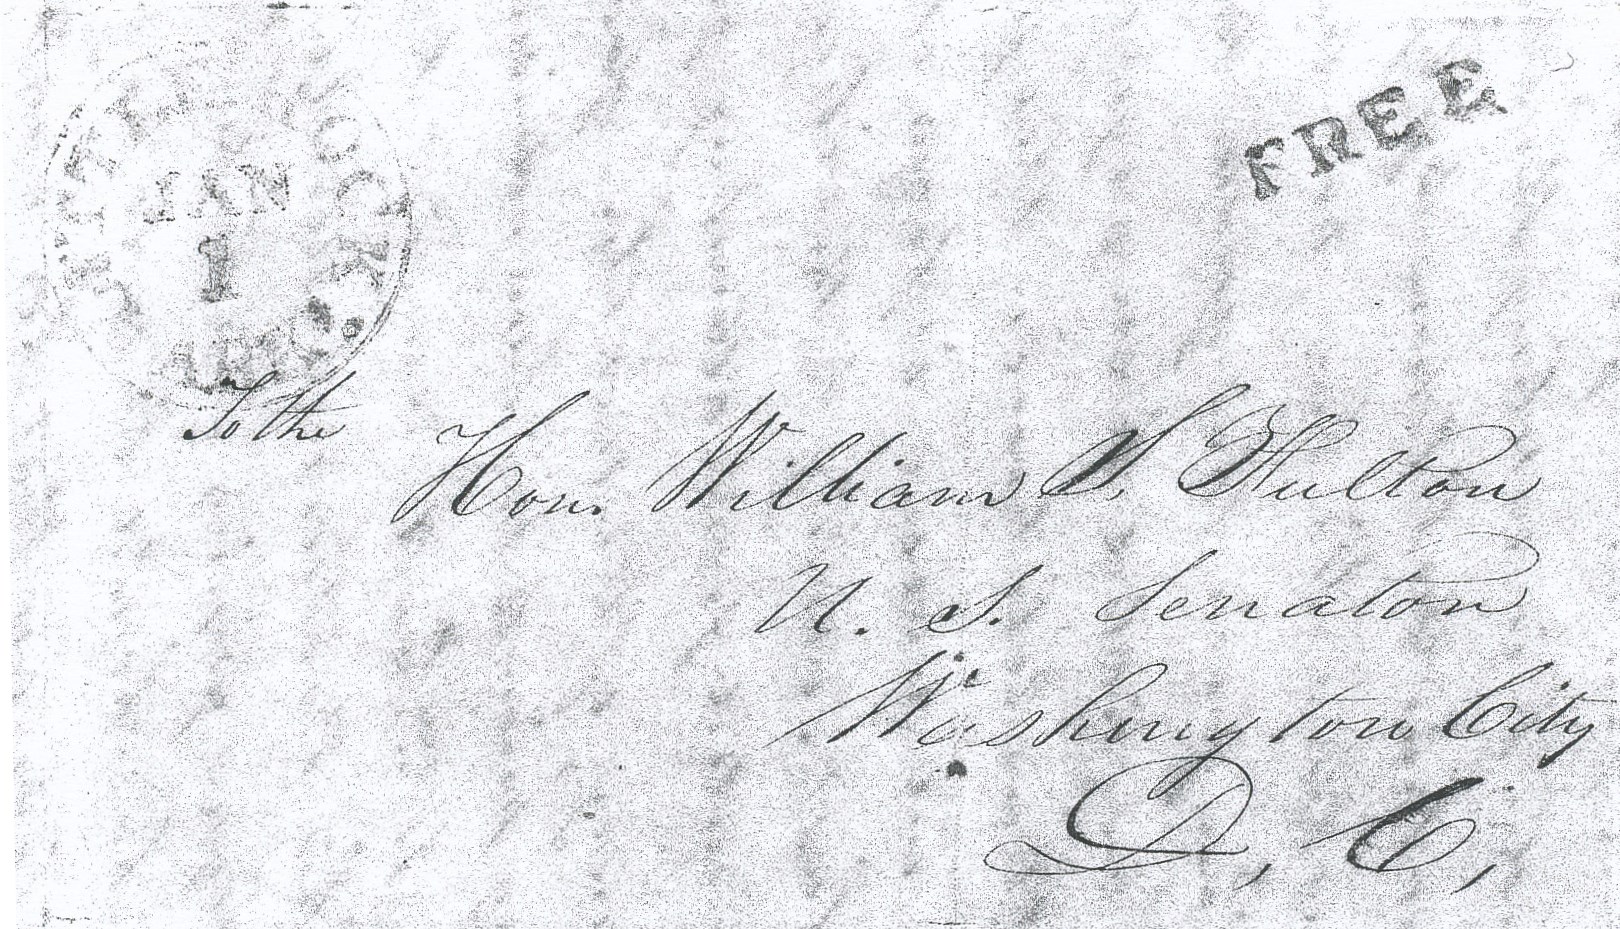 LITTLE ROCK
JAN
1
ARK.
FREE
To the
Hon. William S. Fulton
U. S. Senator
Washington City
D, C,